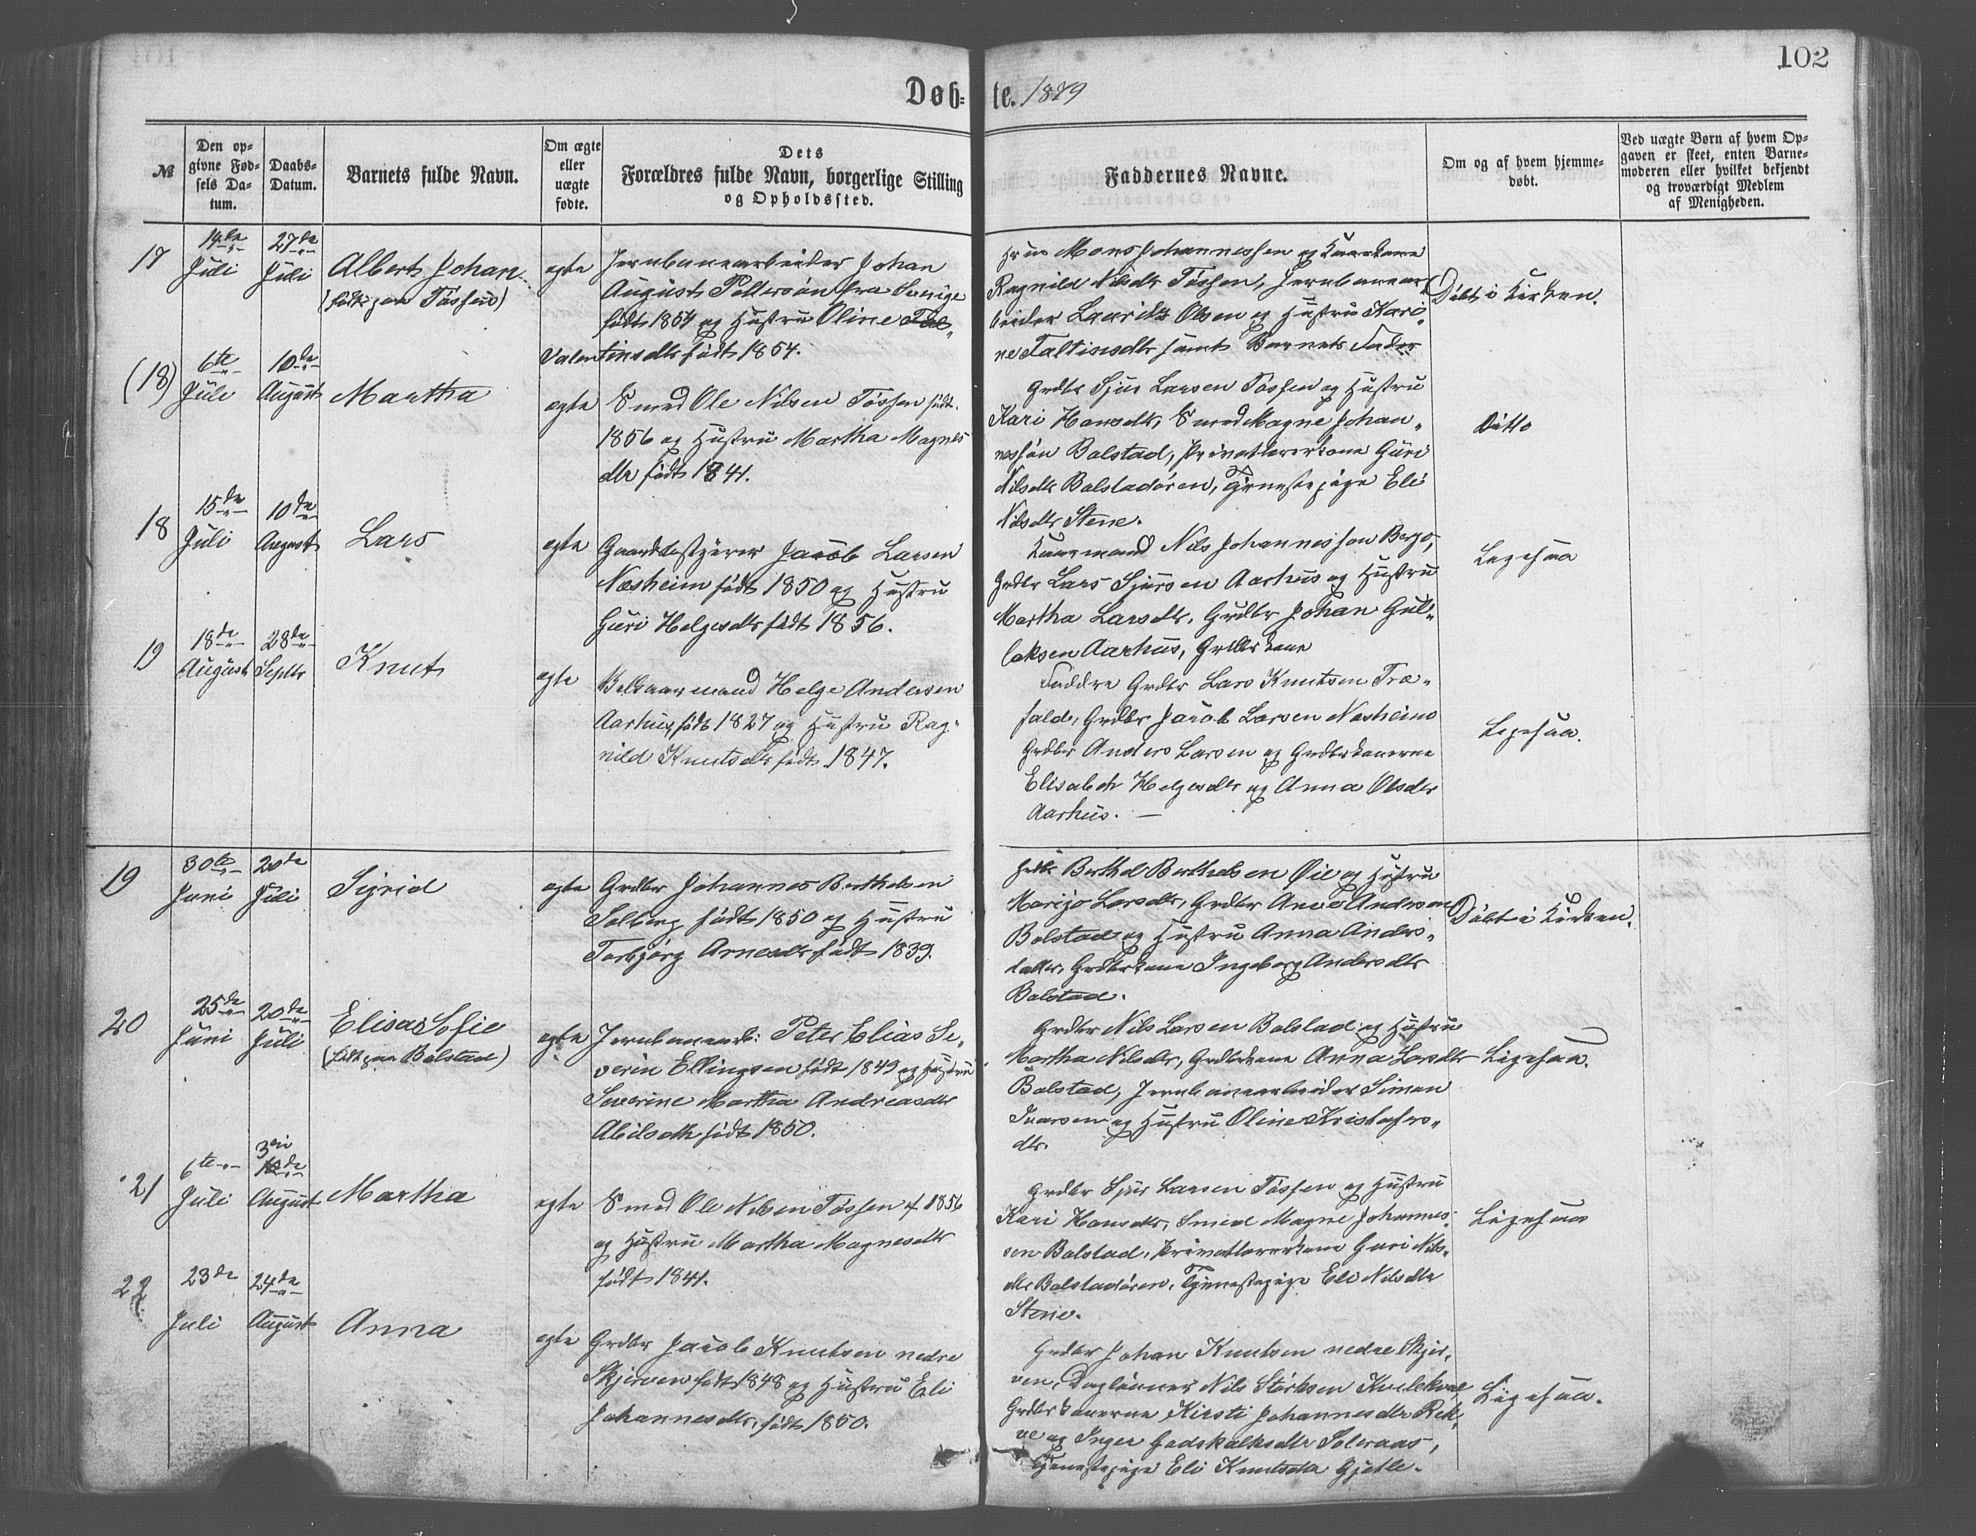 102
Døb- te. 1879
№
Den opgivne Fødsels Datum.
Daabs-Datum.
Barnets fulde Navn.
Om ægte eller uægte fødte.
Dets Forældres fulde Navn, borgerlige Stilling og Opholdssted.
Faddernes Navne.
Om og af hvem hjemmedøbt.
Ved uægte Børn af hvem Opgaven er skeet, enten Barnemoderen eller hvilket bekjendt og troværdigt Medlem af Menigheden.
17
14de Juli
27de Juli
Albert Johan
(født paa Tøssen)
egte
Jernbanearbeider Johan
August Pettersøn fra Sverige
født 1854 og Hustru Oline
Valentinsdtr født 1854.
Mons Johannessen og
Ragnild Nilsdtr Tøssen, Jernbanear-
beider Lauritz Olsen og Hustru Kari-
ne Faltinsdtr samt Barnets Fader
Døbt i Kirken.
(18)
6te Juli
10de August
Martha
egte
Smed Ole Nilsen Tøssen født
1856 og Hustru Martha Magnes
dtr født 1841.
Grdbr Sjur Larsen Tøssen og Hustru
Kari Hansdtr, Smed Magne Johan-
nessøn Bolstad, Privatlærerkone Guri
Nilsdtr Bolstadøren, Tjenestepige Eli
Nilsdtr Stene.
Ditto
18
15de Juli
10de August
Lars
egte
Gaardbestyrer Jacob Larsen
Næsheim født 1850 og Hustru
Guri Helgesdtr født 1856.
Kaarmand Nils Johannessøn Berge,
Grdbr Lars Sjursen Aarhus og Hustru
Martha Larsdtr, Grdbr Johan Gul-
laksen Aarhus, Grdbrkone
Ligesaa
19
18de August
28de Septbr
Knut
egte
Kaarmand Helge Andersen
Aarhus født 1827 og Hustru Rag-
nild Knutsdtr født 1847.
Faddre Grdbr Lars Knutsen Træ-
fald, Grdbr Jacob Larsen Næsheim
Grdbr Anders Larsen og Grdbrkonerne
Elisabeth Helgesdtr og Anna Olsdtr
Aarhus. —
Ligesaa.
19
30te Juni
20de Juli
Sigrid
egte
Grdbr Johannes Berthelsen
Solberg født 1850 og Hustru
Torbjørg Arnesdtr født 1839.
Grdbr Berthel Berthelsen Øie og Hustru
Marijo Larsdtr, Grdbr Arne Andersen
Bolstad og Hustru Anna Anders-
datter, Grdbrkone Ingeborg Andersdtr
Bolstad.
Døbt i Kirken.
20
25de Juni
20de Juli
Elisa Sofie
(født paa Bolstad)
egte
Jernbanearb: Peter Elias Se-
verin Ellingsen født 1849 og Hustru
Severine Martha Andreasdtr
født 1850.
Grdbr Nils Larsen Bolstad og Hustru
Martha Nilsdtr, Grdbrkone Anna Larsdtr
Bolstad, Jernbanearbeider Simon
Ivarsen og Hustru Oline Kristofers-
dtr.
Ligesaa.
21
6te Juli
3die August
Martha
egte
Smed Ole Nilsen Tøssen f 1856
og Hustru Martha Magnesdtr
født 1841.
Grdbr Sjur Larsen Tøssen og Hustru
Kari Hansdtr, Smed Magne Johannes-
sen Bolstad, Privatlærerkone Guri Nils-
dtr Bolstadøren, Tjenestepige Eli Nilsdtr
Stene.
Ligesaa
22
23de Juli
24de August
Anna
egte
Grdbr Jacob Knutsen nedre
Skjerven født 1848 og Hustru Eli
Johannesdtr, født 1850.
Grdbr Johan Knutsen nedre Skjer-
ven, Daglønner Nils Størksen Kvilekval
Grdbrkonerne Kirsti Johannesdtr Rek-
ve og Inger Godskalksdtr Solvraas,
Tjenestepige Eli Knutsdtr Gjetle.
Ligesaa.